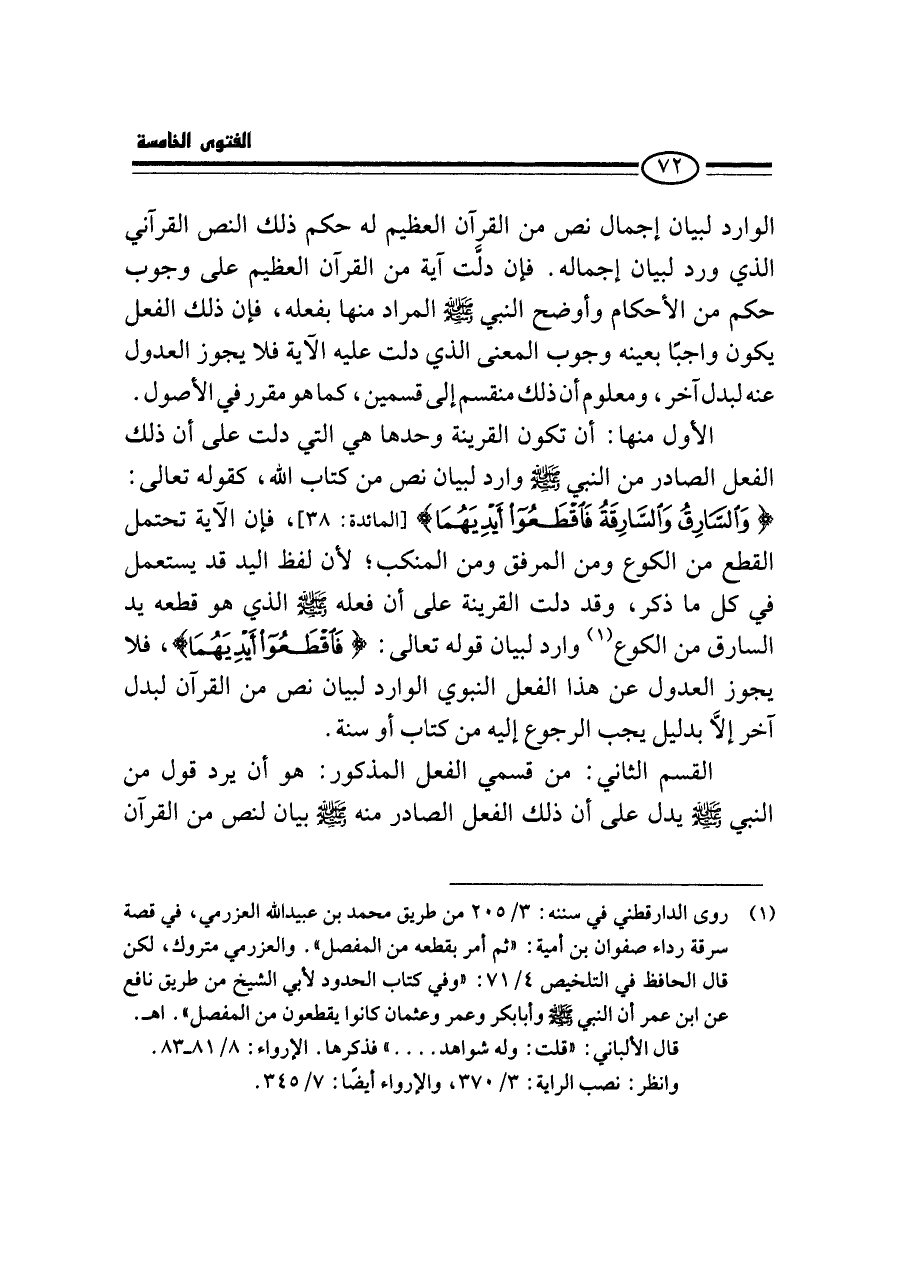 الفتوى الخامسة
٧٢
الوارد لبيان إجمال نص من القرآن العظيم له حكم ذلك النص القرآني
الذي ورد لبيان إجماله. فإن دلَّت آية من القرآن العظيم على وجوب
حكم من الأحكام وأوضح النبي ﷺ المراد منها بفعله، فإن ذلك الفعل
يكون واجبًا بعينه وجوب المعنى الذي دلت عليه الآية فلا يجوز العدول
عنه لبدل آخر، ومعلوم أن ذلك منقسم إلى قسمين، كما هو مقرر في الأصول.
الأول منها: أن تكون القرينة وحدها هي التي دلت على أن ذلك
الفعل الصادر من النبي ﷺ وارد لبيان نص من كتاب الله، كقوله تعالى:
﴿ وَٱلسَّارِقُ وَٱلسَّارِقَةُ فَٱقۡطَعُوٓاْ أَيۡدِيَهُمَا﴾ [المائدة: ٣٨]، فإن الآية تحتمل
القطع من الكوع ومن المرفق ومن المنكب؛ لأن لفظ اليد قد يستعمل
في كل ما ذكر، وقد دلت القرينة على أن فعله ﷺ الذي هو قطعه يد
السارق من الكوع(١) وارد لبيان قوله تعالى: ﴿ فَٱقۡطَعُوٓاْ أَيۡدِيَهُمَا﴾، فلا
يجوز العدول عن هذا الفعل النبوي الوارد لبيان نص من القرآن لبدل
آخر إلاَّ بدليل يجب الرجوع إليه من كتاب أو سنة.
القسم الثاني: من قسمي الفعل المذكور: هو أن يرد قول من
النبي ﷺ يدل على أن ذلك الفعل الصادر منه ﷺ بيان لنص من القرآن
(١) روى الدارقطني في سننه: ٣/ ٢٠٥ من طريق محمد بن عبيدالله العزرمي، في قصة
سرقة رداء صفوان بن أمية: «ثم أمر بقطعه من المفصل». والعزرمي متروك، لكن
قال الحافظ في التلخيص ٤/ ٧١: «وفي كتاب الحدود لأبي الشيخ من طريق نافع
عن ابن عمر أن النبي ﷺ وأبابكر وعمر وعثمان كانوا يقطعون من المفصل». اهـ.
قال الألباني: «قلت: وله شواهد....» فذكرها. الإرواء: ٨/ ٨١ـ٨٣.
وانظر: نصب الراية: ٣/ ٣٧٠، والإرواء أيضًا: ٧/ ٣٤٥.